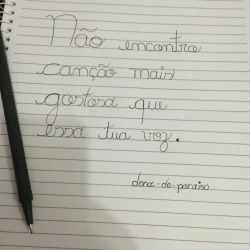 Não encontro
canção mais
gostosa que
essa tua voz.
dona-do-paraíso